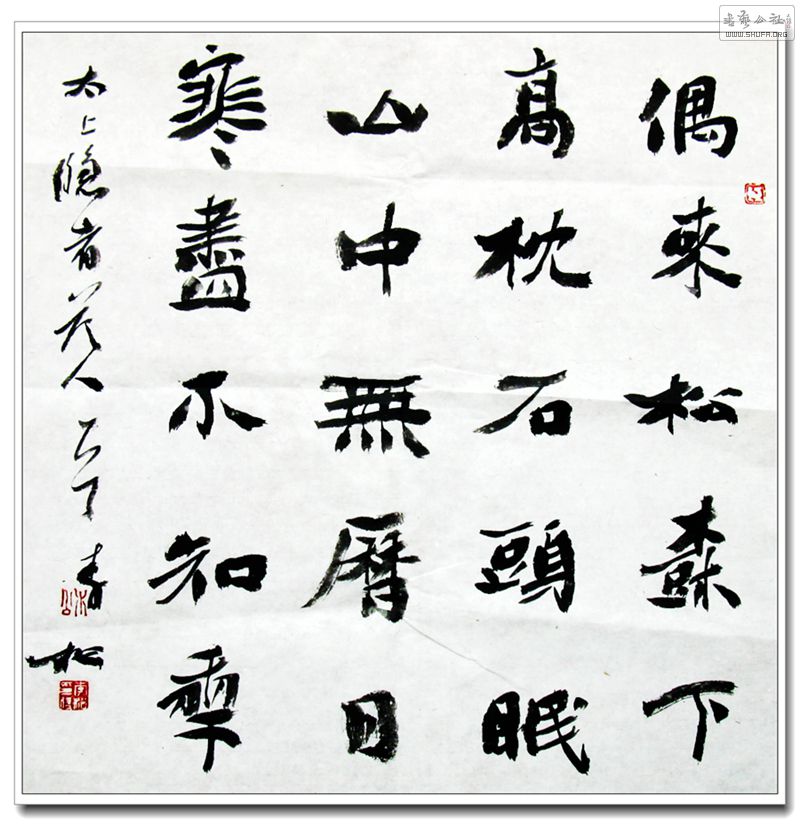 書藝公社
WWW.SHUFA.ORG
偶來松樹下
高枕石頭眠
山中無曆日
寒盡不知年
太上隱者答人
松